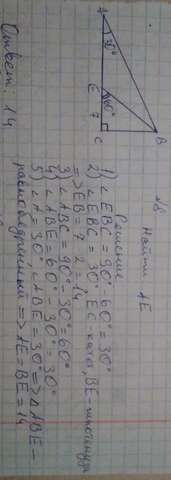 №8
Найти AE
A
30°
E
60°
7
C
B
Решение
1) ∠EBC = 90° - 60° = 30°
2) ∠EBC = 30° EC - катет, BE - гипотенуза
=> EB = 7 · 2 = 14
3) ∠ABC = 90° - 30° = 60°
4) ∠ABE = 60° - 30° = 30°
5) ∠A = 30° ∠ABE = 30° => △ABE -
равнобедренный => AE = BE = 14
Ответ: 14